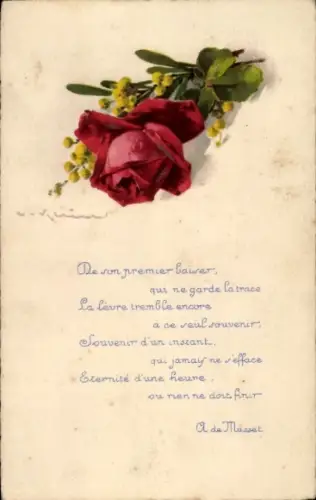 De son premier baiser,
qui ne garde la trace
La lèvre tremble encore
a ce seul souvenir,
Souvenir d'un instant,
qui jamais ne s'efface
Eternité d'une heure,
ou rien ne doit finir
A de Musset